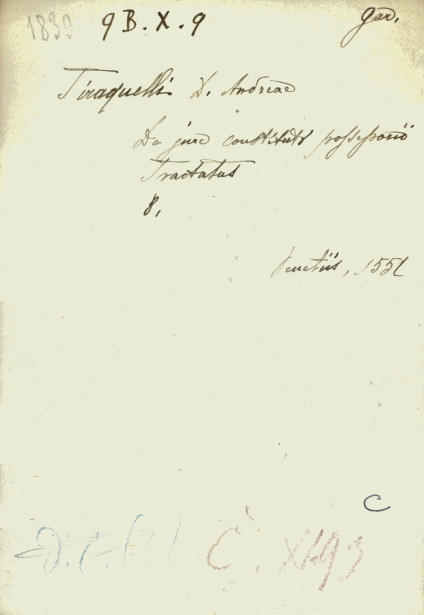 1839 9 B. X. 9 gar.
Tiraquelli D. Andreae
De jure constituti possessorii
Tractatus
8,
Venetiis, 1551
C
C. XI.93